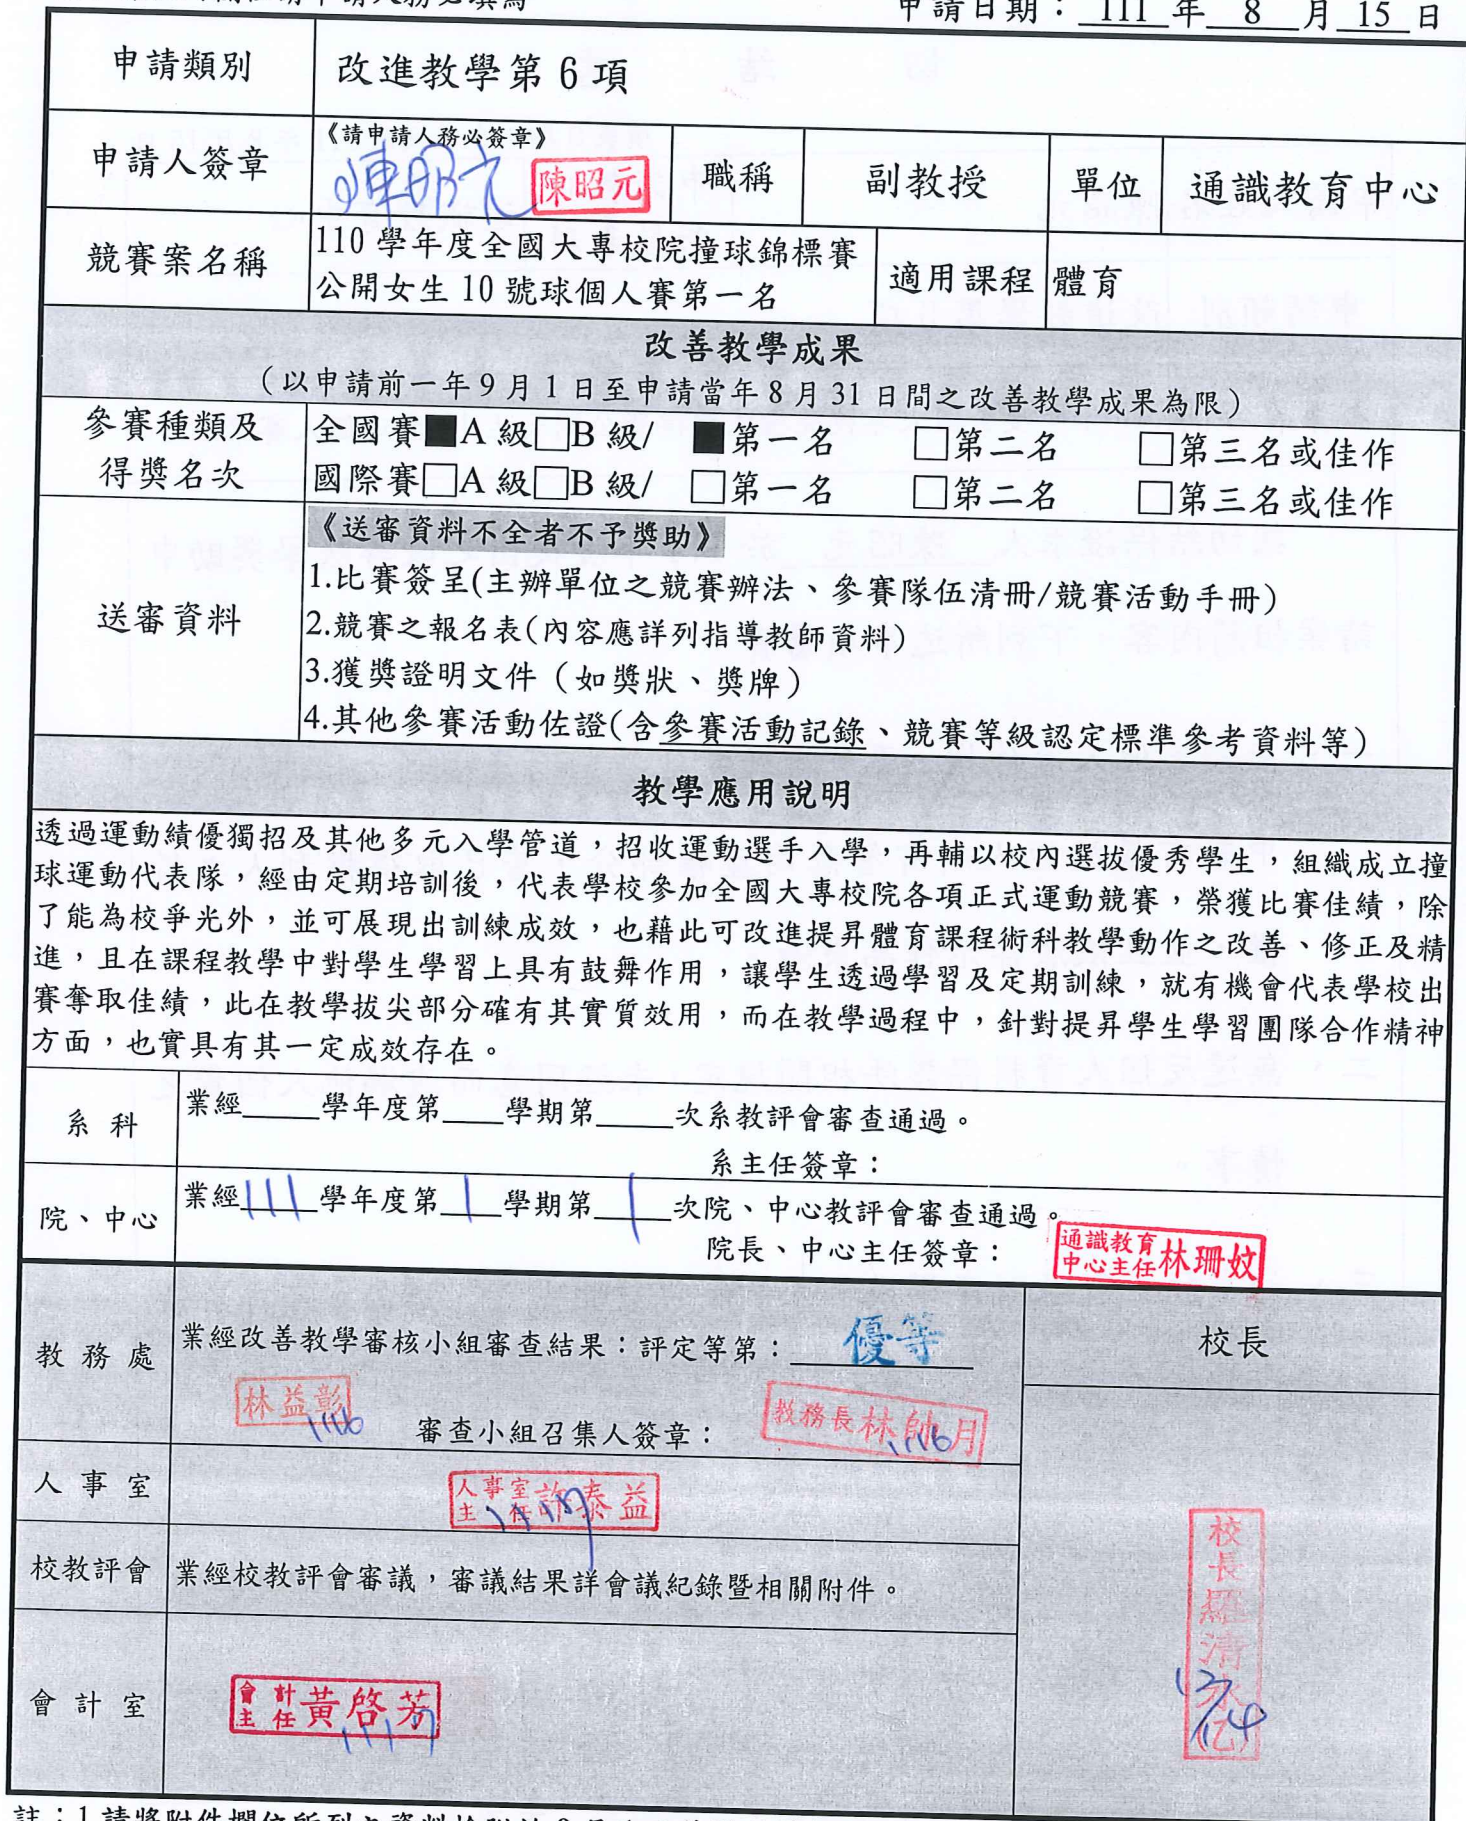 申請日期：111年8月15日
申請類別 改進教學第6項
《請申請人務必簽章》
申請人簽章 陳昭元 陳昭元 職稱 副教授 單位 通識教育中心
競賽案名稱 110學年度全國大專校院撞球錦標賽 適用課程 體育
公開女生10號球個人賽第一名
改善教學成果
（以申請前一年9月1日至申請當年8月31日間之改善教學成果為限）
參賽種類及 全國賽■A級□B級/ ■第一名 □第二名 □第三名或佳作
得獎名次 國際賽□A級□B級/ □第一名 □第二名 □第三名或佳作
《送審資料不全者不予獎助》
送審資料
1.比賽簽呈(主辦單位之競賽辦法、參賽隊伍清冊/競賽活動手冊)
2.競賽之報名表(內容應詳列指導教師資料)
3.獲獎證明文件（如獎狀、獎牌）
4.其他參賽活動佐證(含參賽活動記錄、競賽等級認定標準參考資料等)
教學應用說明
透過運動績優獨招及其他多元入學管道，招收運動選手入學，再輔以校內選拔優秀學生，組織成立撞
球運動代表隊，經由定期培訓後，代表學校參加全國大專校院各項正式運動競賽，榮獲比賽佳績，除
了能為校爭光外，並可展現出訓練成效，也藉此可改進提昇體育課程術科教學動作之改善、修正及精
進，且在課程教學中對學生學習上具有鼓舞作用，讓學生透過學習及定期訓練，就有機會代表學校出
賽奪取佳績，此在教學拔尖部分確有其實質效用，而在教學過程中，針對提昇學生學習團隊合作精神
方面，也實具有其一定成效存在。
系科 業經_____學年度第____學期第_____次系教評會審查通過。
系主任簽章：
院、中心 業經111學年度第1學期第1次院、中心教評會審查通過。
院長、中心主任簽章： 通識教育中心主任林珊妏
教務處 業經改善教學審核小組審查結果：評定等第：優等 校長
林益彰 審查小組召集人簽章： 教務長林帥月
人事室 人事室主任許泰益
校教評會 業經校教評會審議，審議結果詳會議紀錄暨相關附件。
會計室 會計主任黃啓芳